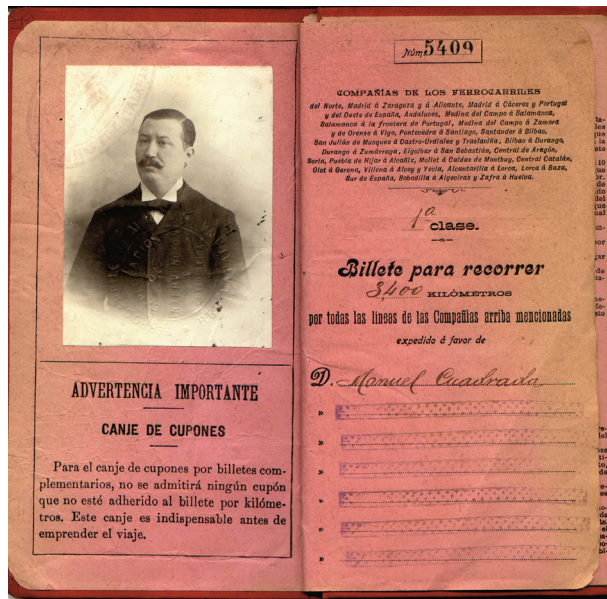 ADVERTENCIA IMPORTANTE
CANJE DE CUPONES
Para el canje de cupones por billetes com-
plementarios, no se admitirá ningún cupón
que no esté adherido al billete por kilóme-
tros. Este canje es indispensable antes de
emprender el viaje.
Núm. 5409
COMPAÑIAS DE LOS FERROCARRILES
del Norte, Madrid á Zaragoza y á Alicante, Madrid á Cáceres y Portugal
y del Oeste de España, Andaluces, Medina del Campo á Salamanca,
Salamanca á la frontera de Portugal, Medina del Campo á Zamora
y de Orense á Vigo, Pontevedra á Santiago, Santander á Bilbao,
San Julián de Musques á Castro-Urdiales y Traslaviña, Bilbao á Durango,
Durango á Zumárraga, Elgoibar á San Sebastián, Central de Aragón,
Soria, Puebla de Hijar á Alcañiz, Mollet á Caldas de Montbuy, Central Catalán,
Olot á Gerona, Villena á Alcoy y Yecla, Alcantarilla á Lorca, Lorca á Baza,
Sur de España, Bobadilla á Algeciras y Zafra á Huelva.
1ª clase.
Billete para recorrer
3400 KILÓMETROS
por todas las lineas de las Compañias arriba mencionadas
expedido á favor de
D. Manuel Cuadrada
»
»
»
»
»
»